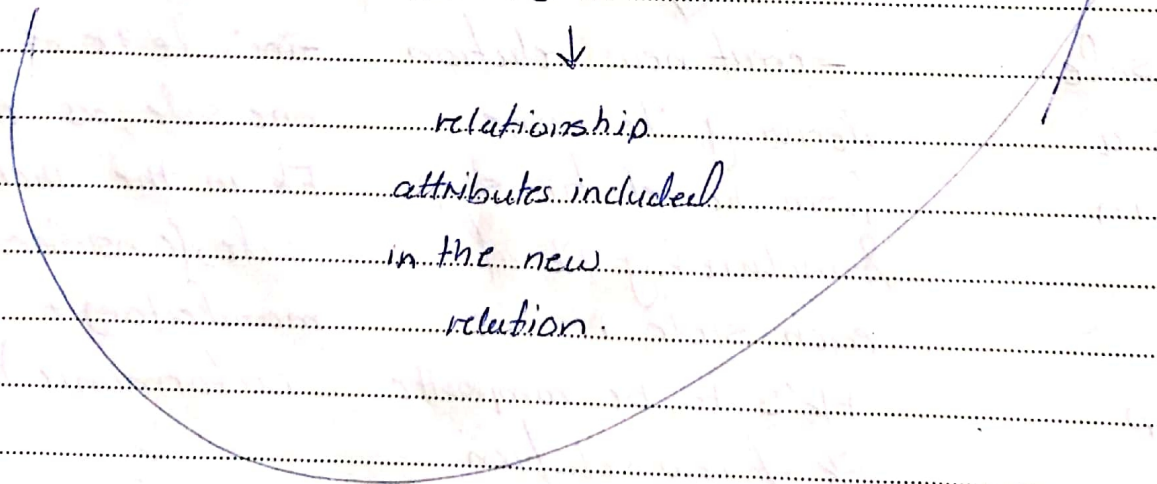 ↓
relationship
attributes included
in the new
relation.